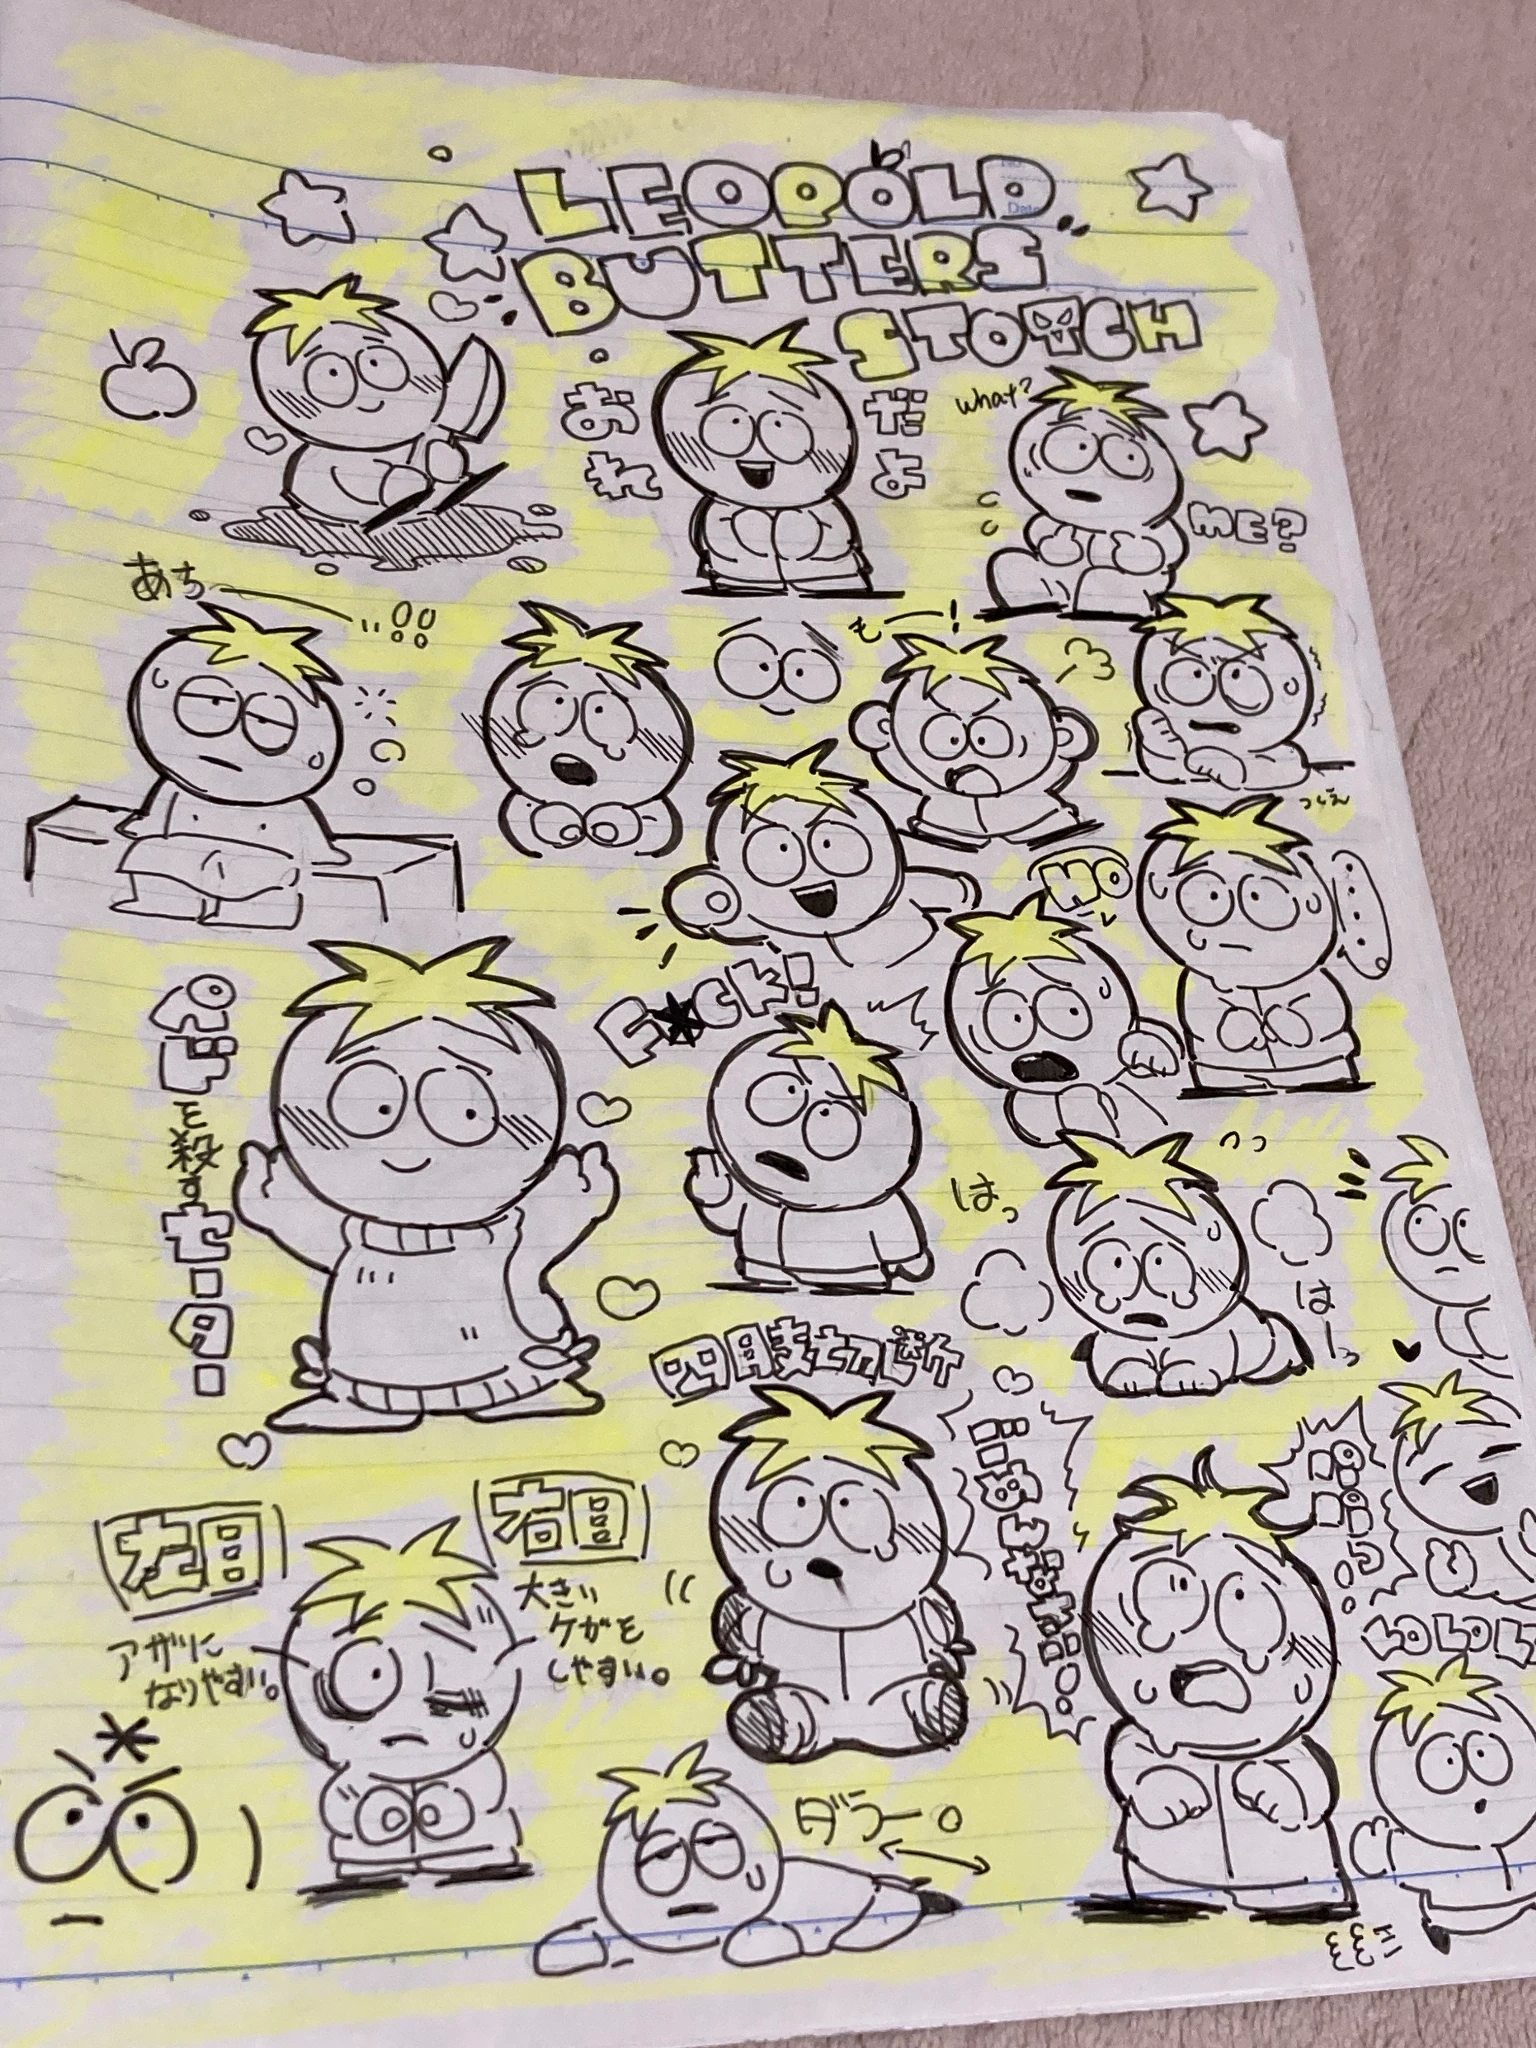 LEOPOLD
BUTTERS
STOTCH
おれ
だよ
what?
ME?
あちー
もー!
つくえ
NO
F★CK!
を殺すセーター
はっ
はーっ
四肢切断
左目
アザに
なりやすい。
右目
大きい
ケガを
しやすい。
ダラー。